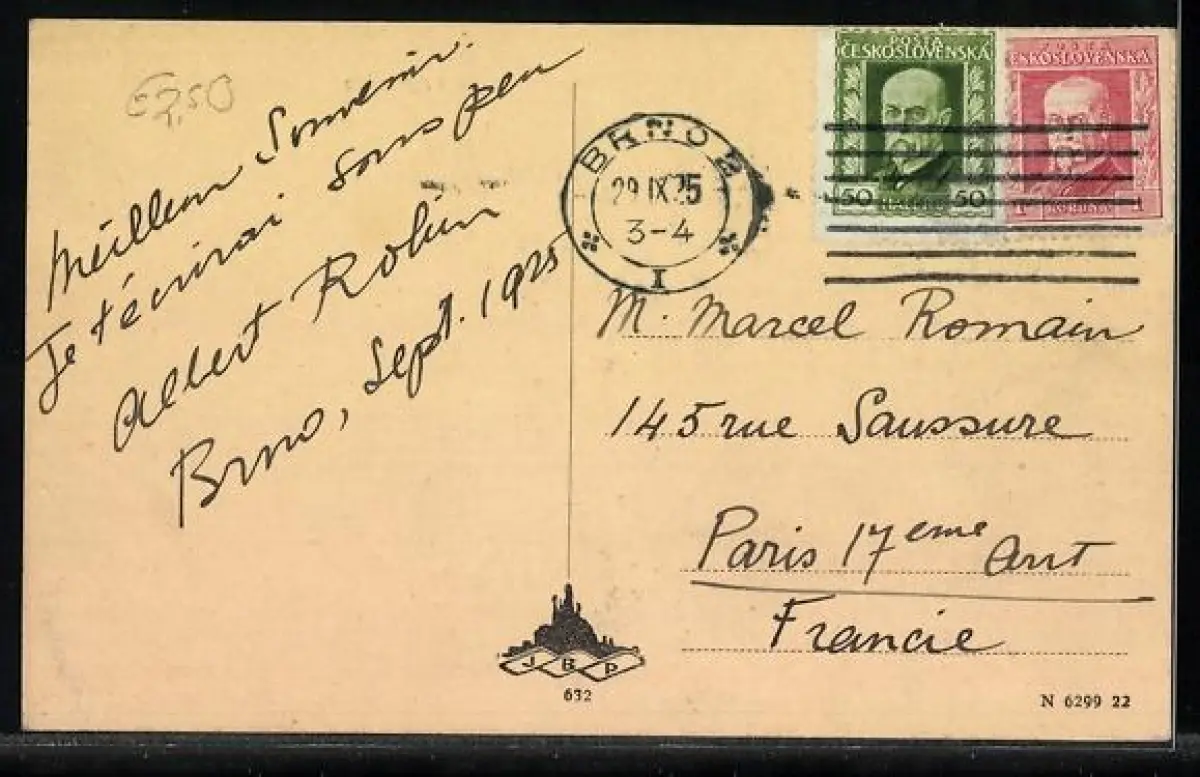 €2,50
Meilleur Souvenir.
Je t'écrirai sous peu
Albert Robin
Brno, Sept. 1925
BRNO 2
29.IX.25
3-4
I
POŠTA
ČESKOSLOVENSKÁ
50 50
POŠTA
ČESKOSLOVENSKÁ
1 KORUNA 1
M. Marcel Romain
145 rue Saussure
Paris 17eme Arrt
Francie
J B P
632
N 6299 22